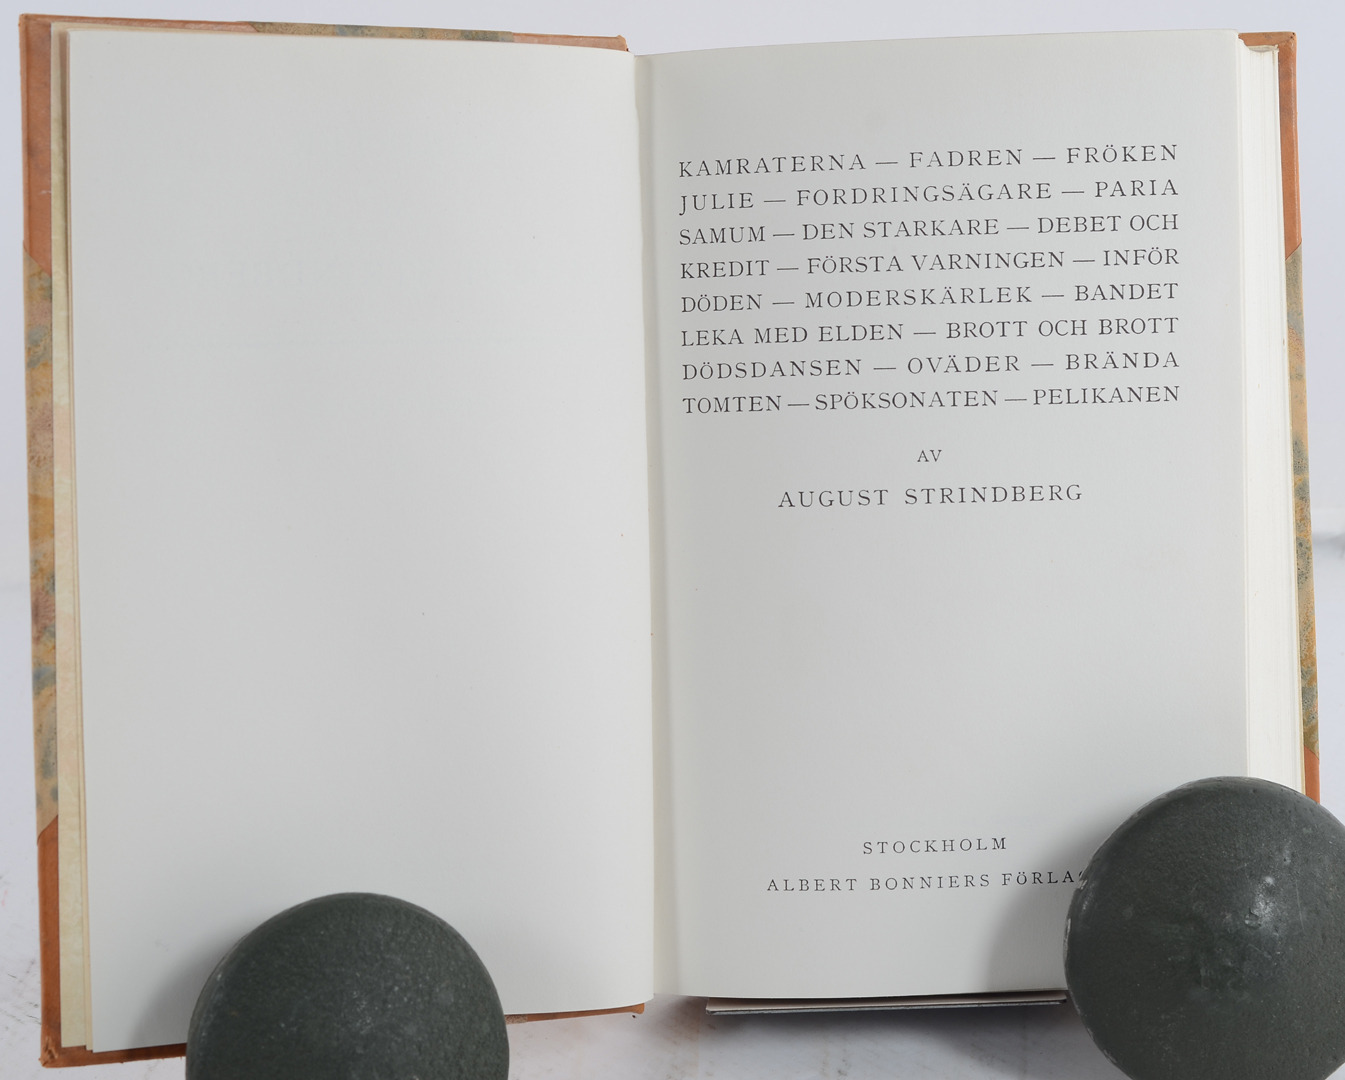 KAMRATERNA — FADREN — FRÖKEN
JULIE — FORDRINGSÄGARE — PARIA
SAMUM — DEN STARKARE — DEBET OCH
KREDIT — FÖRSTA VARNINGEN — INFÖR
DÖDEN — MODERSKÄRLEK — BANDET
LEKA MED ELDEN — BROTT OCH BROTT
DÖDSDANSEN — OVÄDER — BRÄNDA
TOMTEN — SPÖKSONATEN — PELIKANEN
AV
AUGUST STRINDBERG
STOCKHOLM
ALBERT BONNIERS